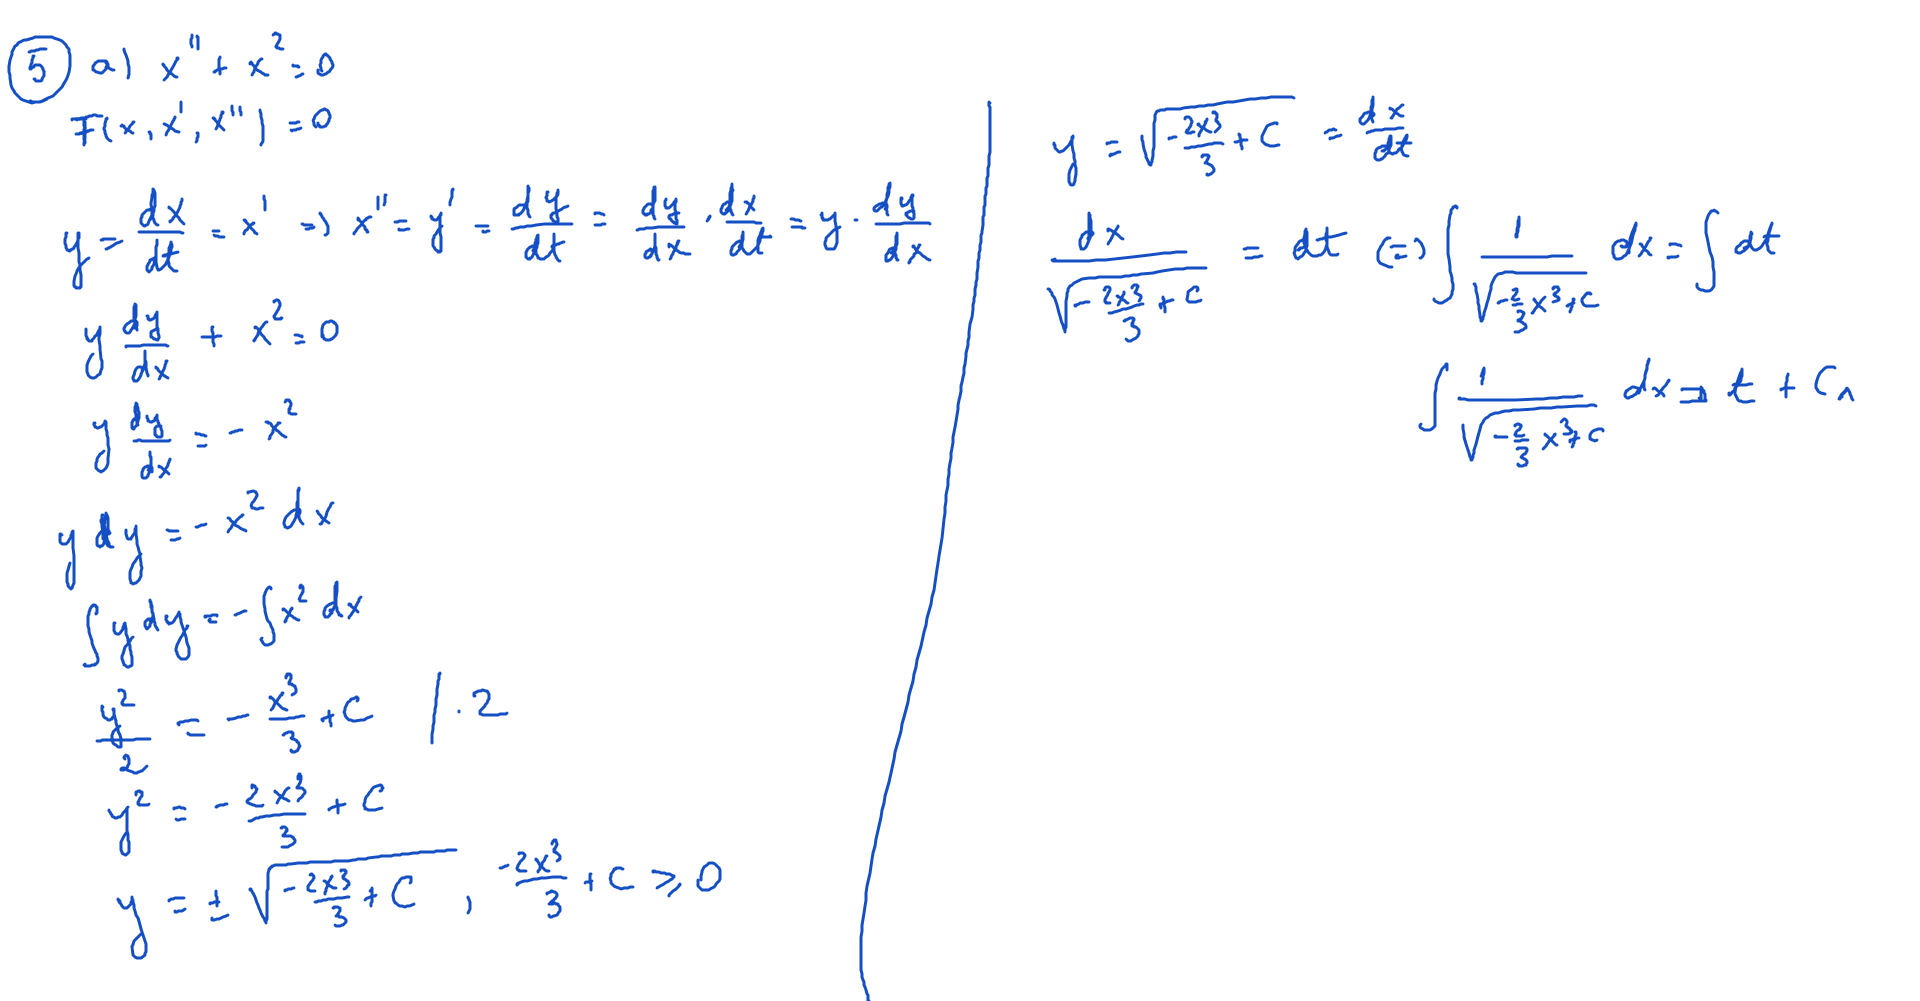 5 a) x'' + x² = 0
F(x, x', x'') = 0
y = dx/dt = x' => x'' = y' = dy/dt = dy/dx · dx/dt = y · dy/dx
y dy/dx + x² = 0
y dy/dx = - x²
y dy = - x² dx
∫ y dy = - ∫ x² dx
y²/2 = - x³/3 + C / · 2
y² = - 2x³/3 + C
y = ± √(- 2x³/3 + C) , -2x³/3 + C ⩾ 0
y = √(- 2x³/3 + C) = dx/dt
dx/√(- 2x³/3 + C) = dt (=) ∫ 1/√(-2/3 x³ + C) dx = ∫ dt
∫ 1/√(-2/3 x³ + C) dx = t + C₁